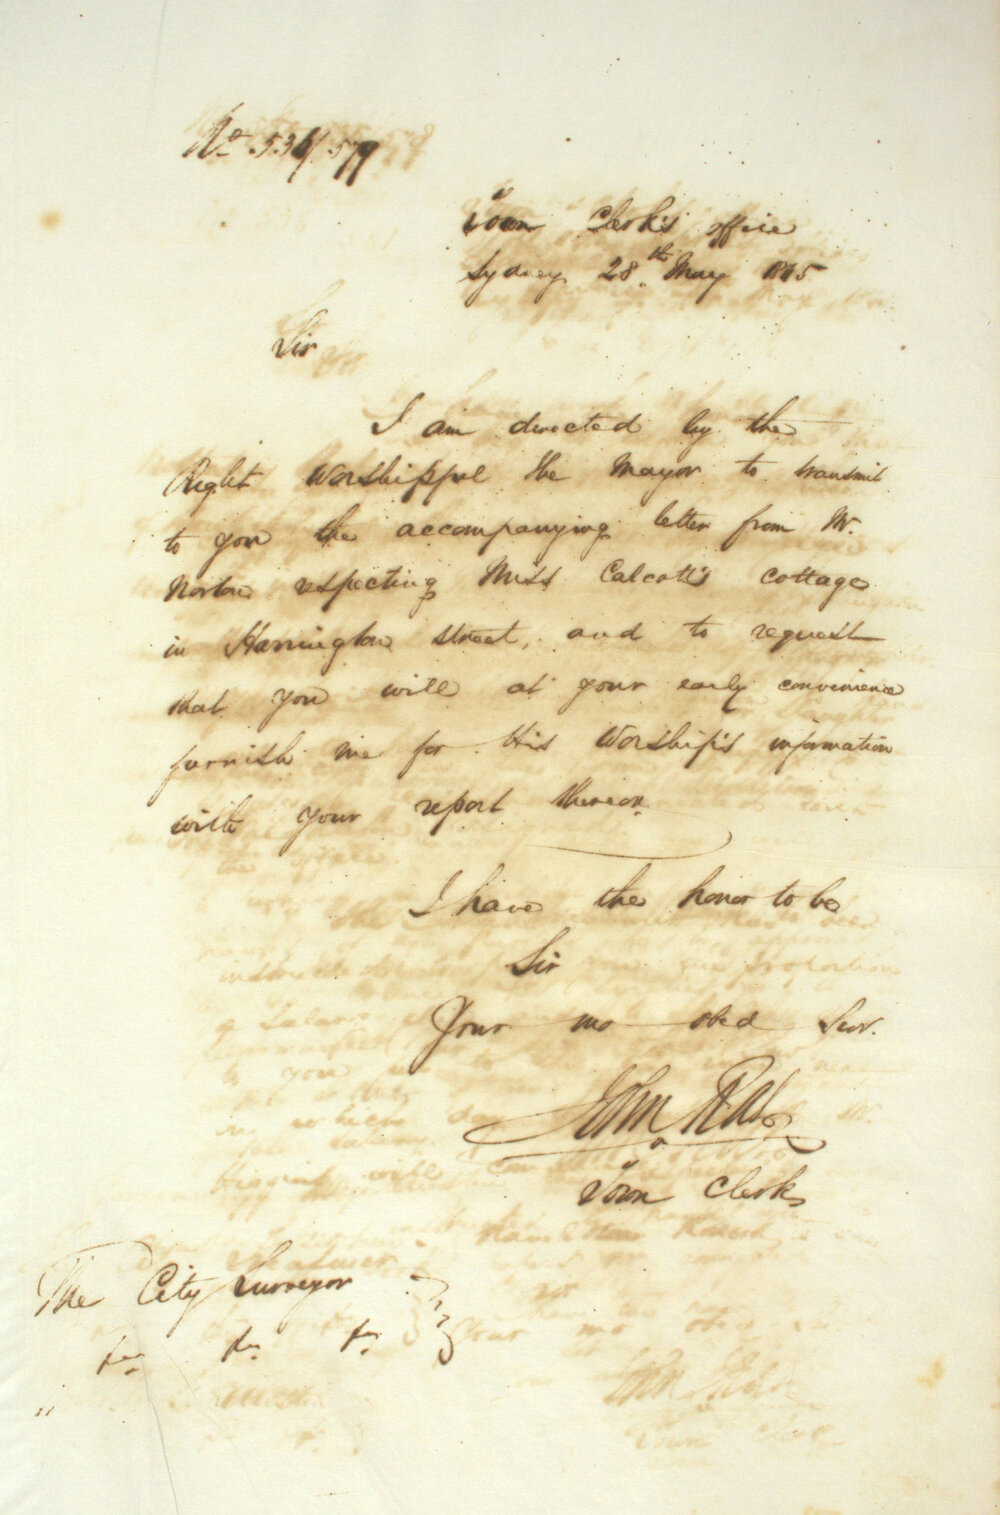 Town Clerk's office
Sydney 28th May 1845
Sir
I am directed by the
Right Worshipful the Mayor to transmit
to you the accompanying letter from Mr.
Norton respecting Miss Calcott's cottage
in Harrington street, and to request
that you will at your early convenience
furnish me for His Worship's information
with your report thereon
I have the honor to be
Sir
Your mo obed Serv.
John Rae
Town Clerk
The City Surveyor